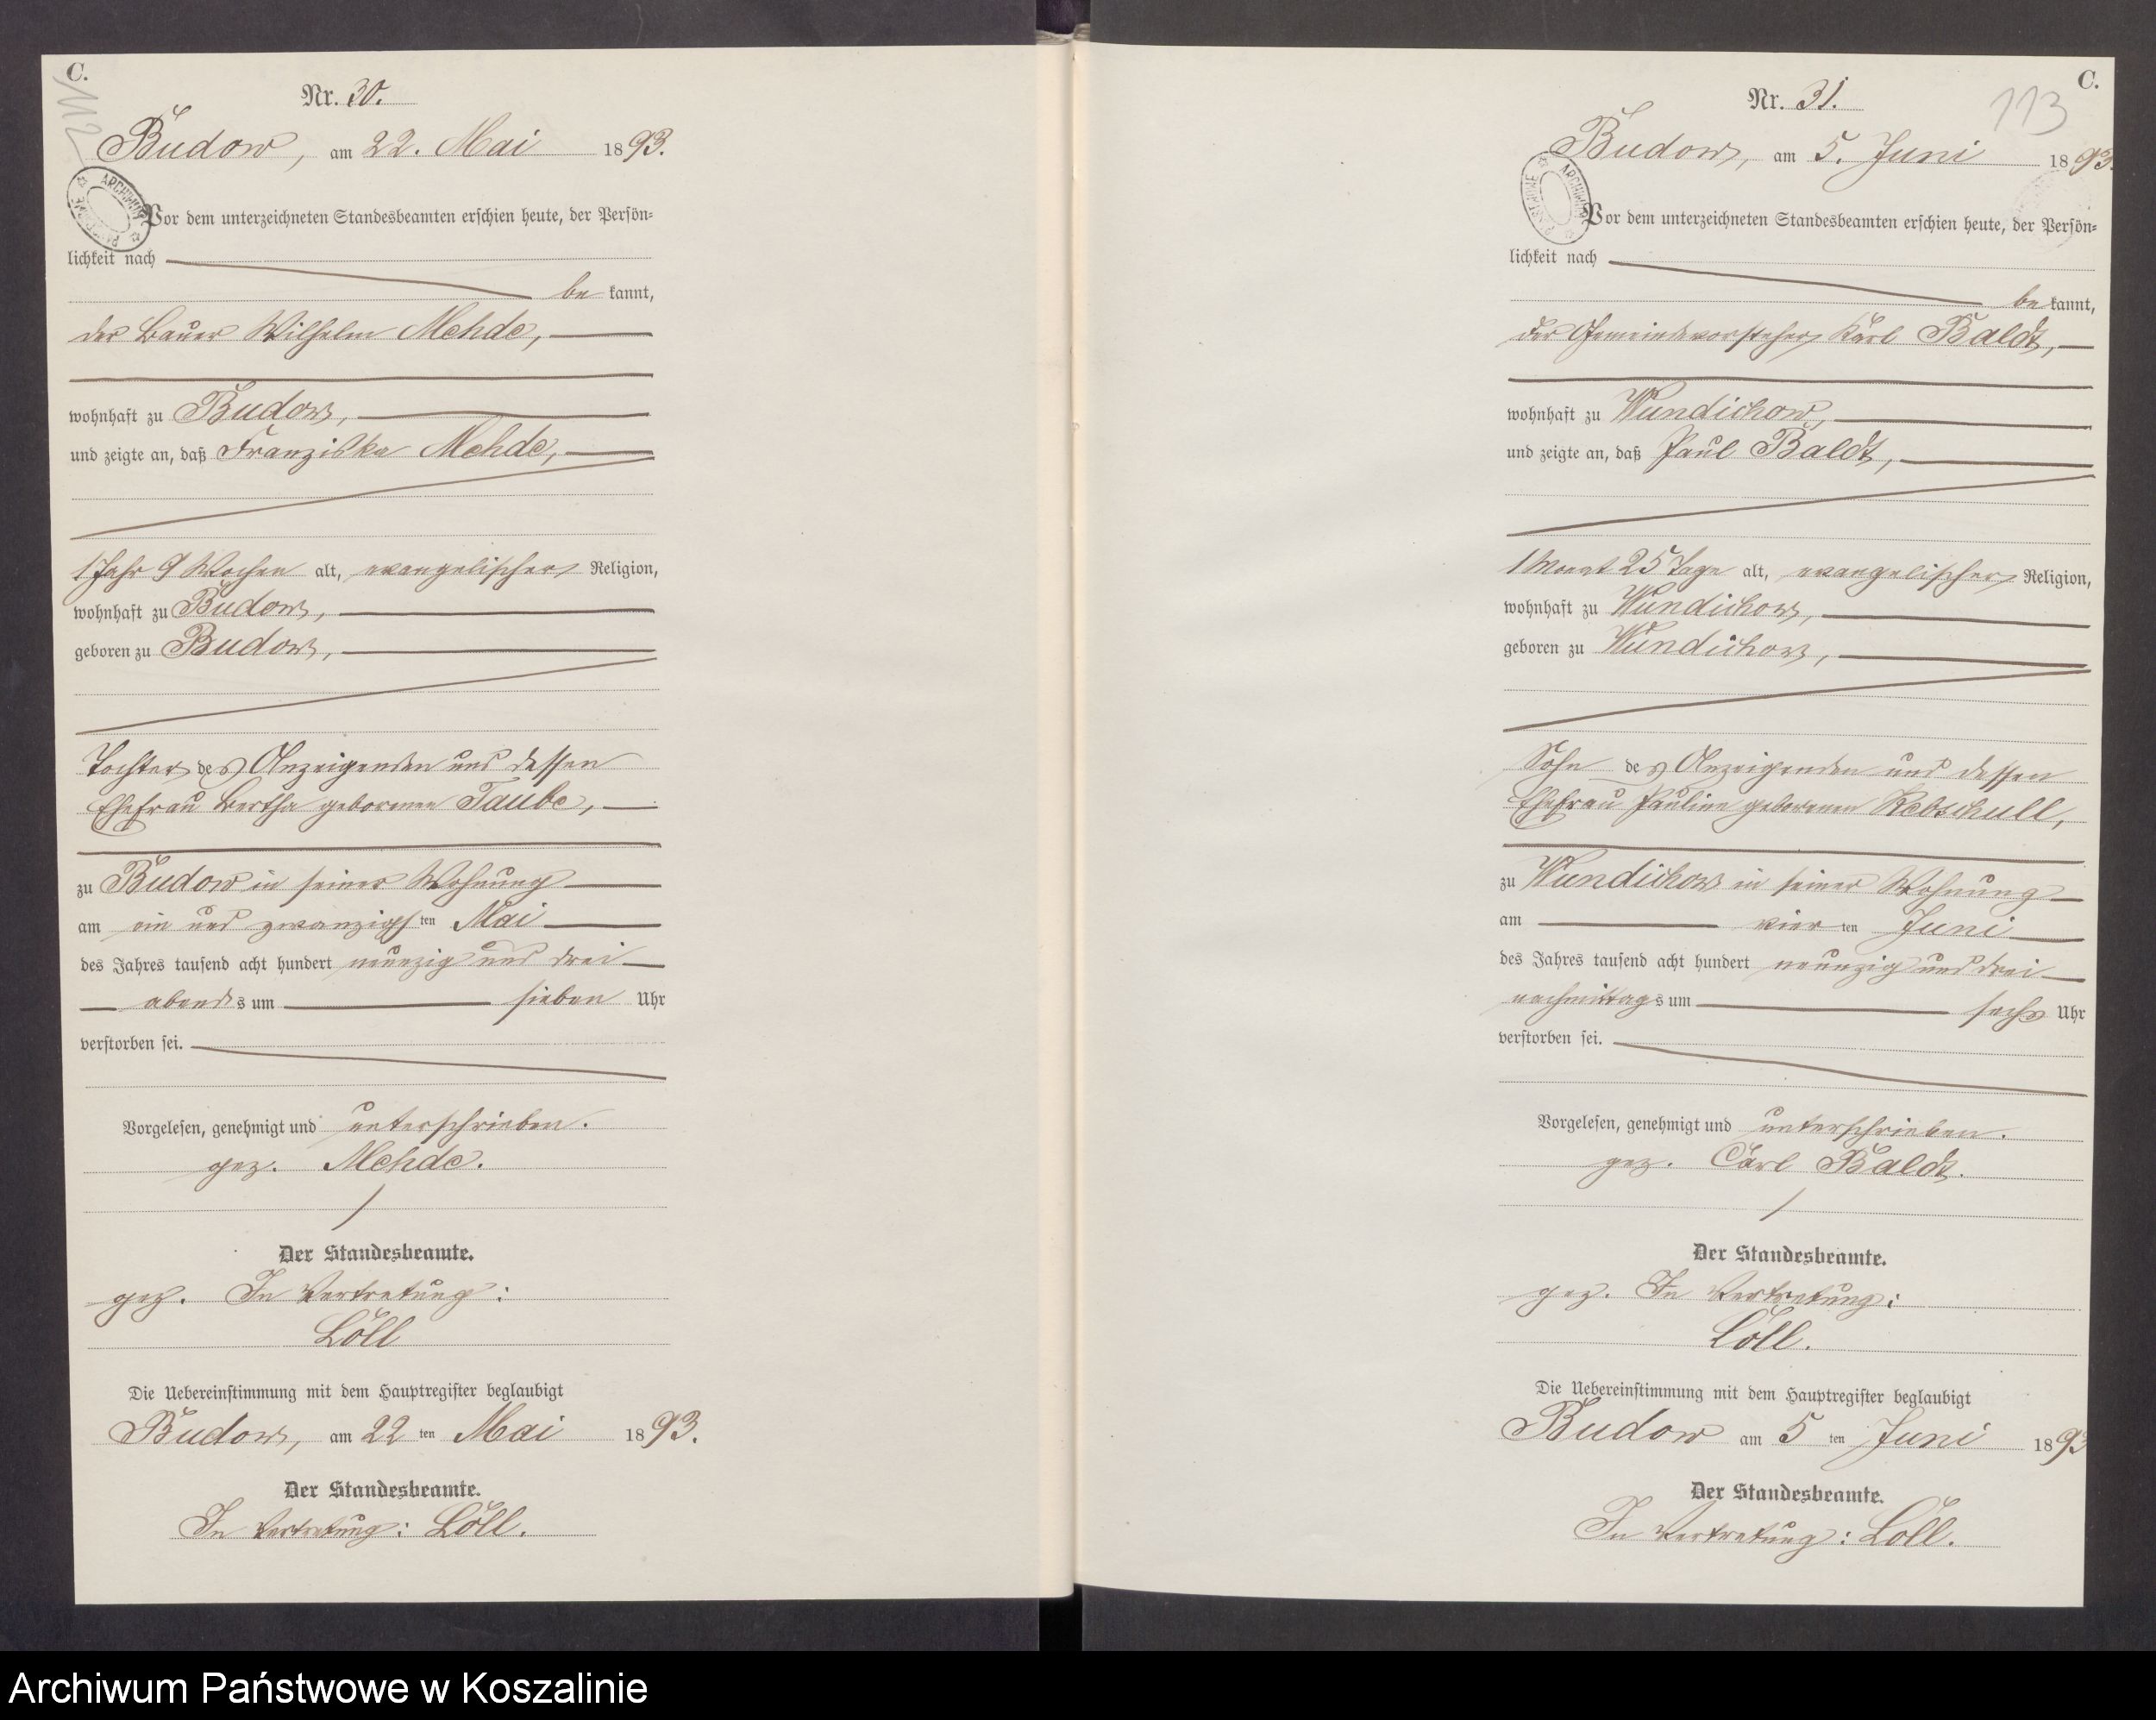 C.
112
Nr. 30.
Budow, am 22. Mai 1893.
ARCHIWUM PAŃSTWOWE
Vor dem unterzeichneten Standesbeamten erschien heute, der Persön=
lichkeit nach
be kannt,
der Bauer Wilhelm Mehde,
wohnhaft zu Budow,
und zeigte an, daß Franziska Mehde,
1 Jahr 9 Wochen alt, evangelischer Religion,
wohnhaft zu Budow,
geboren zu Budow,
Tochter des Anzeigenden und dessen
Ehefrau Bertha geborenen Taube,
zu Budow in seiner Wohnung
am ein und zwanzigsten Mai
des Jahres tausend acht hundert neunzig und drei
abends um sieben Uhr
verstorben sei.
Vorgelesen, genehmigt und unterschrieben.
gez. Mehde.
Der Standesbeamte.
gez. In Vertretung:
Löll
Die Uebereinstimmung mit dem Hauptregister beglaubigt
Budow, am 22 ten Mai 1893.
Der Standesbeamte.
In Vertretung: Löll.
C.
113
Nr. 31.
Budow, am 5. Juni 1893.
ARCHIWUM PAŃSTWOWE
Vor dem unterzeichneten Standesbeamten erschien heute, der Persön=
lichkeit nach
be kannt,
der Gemeindevorsteher Karl Baldt,
wohnhaft zu Wundichow,
und zeigte an, daß Paul Baldt,
1 Monat 25 Tage alt, evangelischer Religion,
wohnhaft zu Wundichow,
geboren zu Wundichow,
Sohn des Anzeigenden und dessen
Ehefrau Pauline geborenen Rebschull,
zu Wundichow in seiner Wohnung
am vier ten Juni
des Jahres tausend acht hundert neunzig und drei
nachmittags um sechs Uhr
verstorben sei.
Vorgelesen, genehmigt und unterschrieben.
gez. Carl Baldt.
Der Standesbeamte.
gez. In Vertretung:
Löll.
Die Uebereinstimmung mit dem Hauptregister beglaubigt
Budow am 5 ten Juni 1893
Der Standesbeamte.
In Vertretung: Löll.
Archiwum Państwowe w Koszalinie